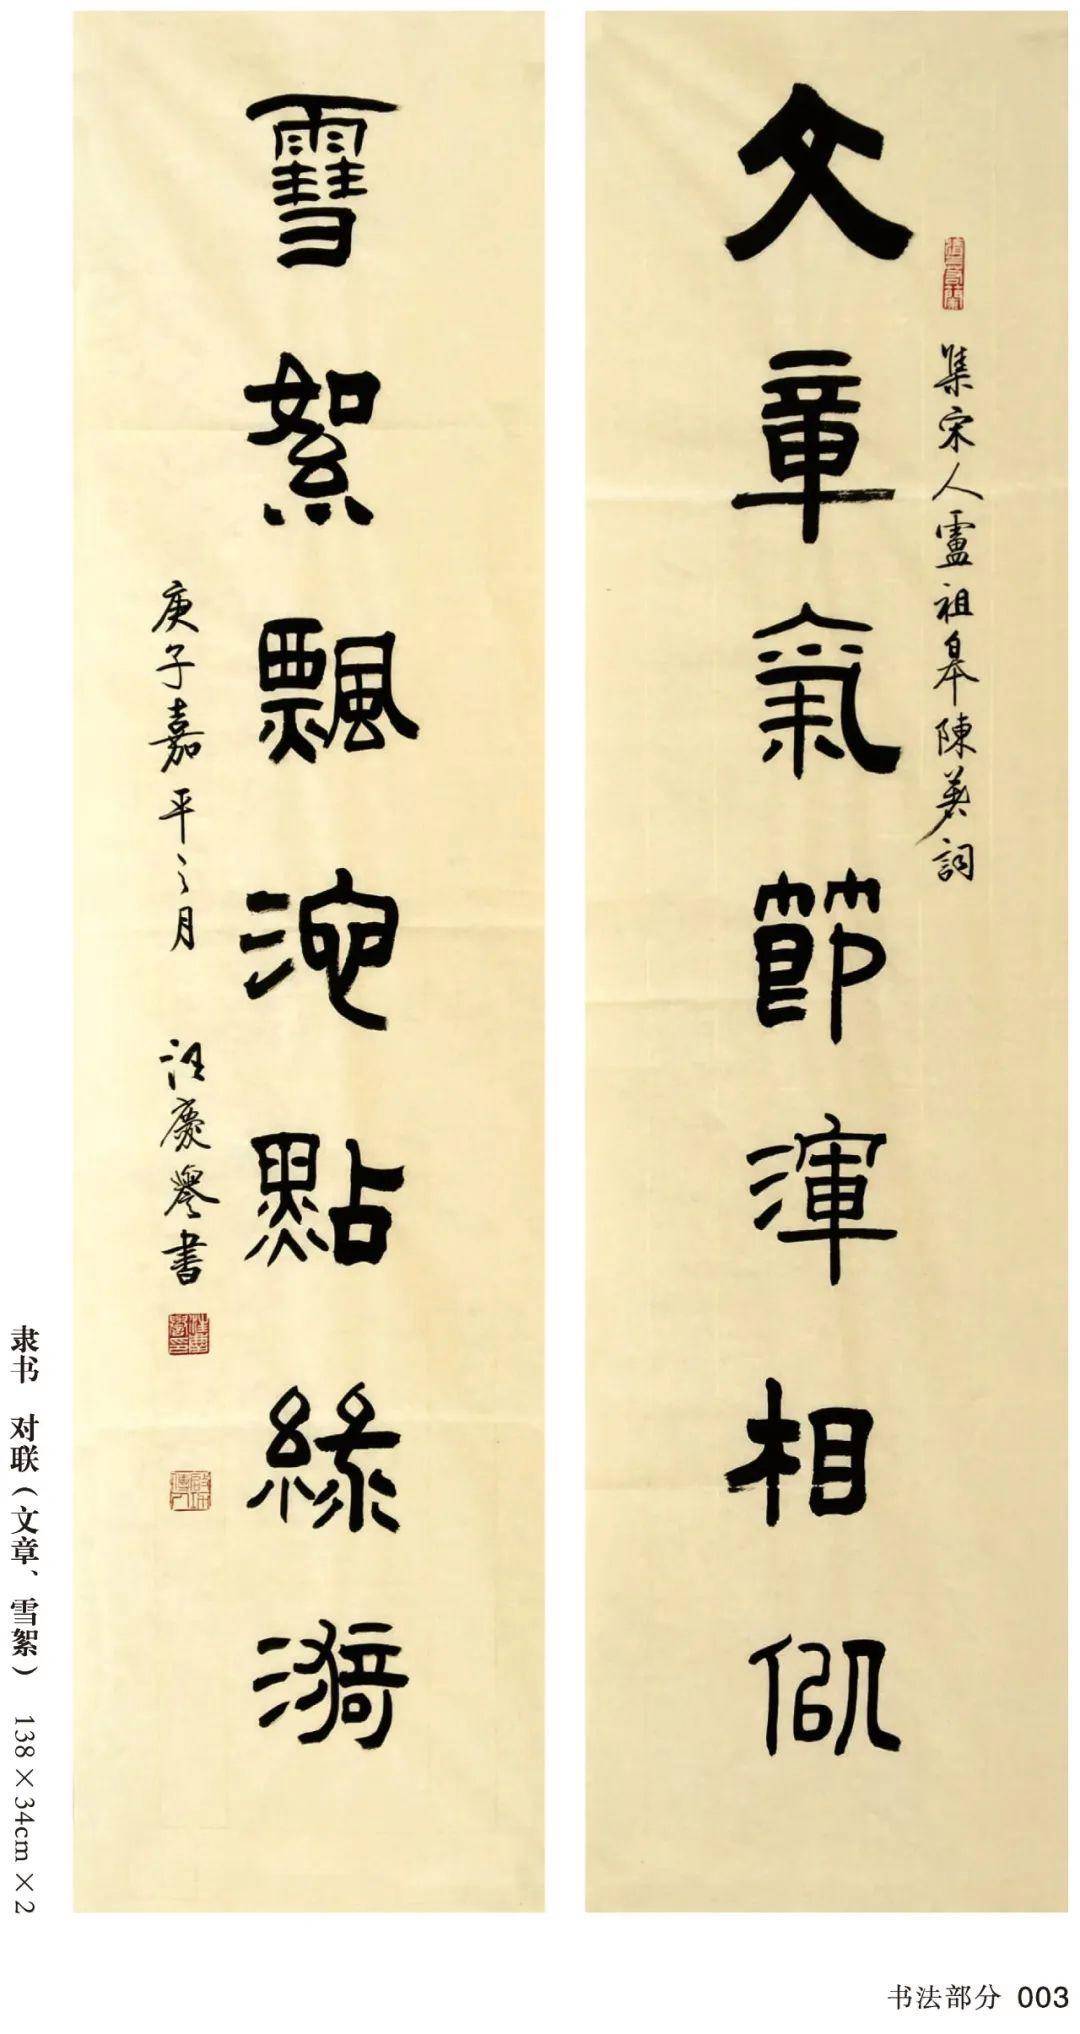 文章氣節渾相似
集宋人盧祖皋陳著詞
雪絮飄池點綠漪
庚子嘉平之月 汪慶譽書
隶书 对联（文章、雪絮） 138×34cm×2
书法部分 003